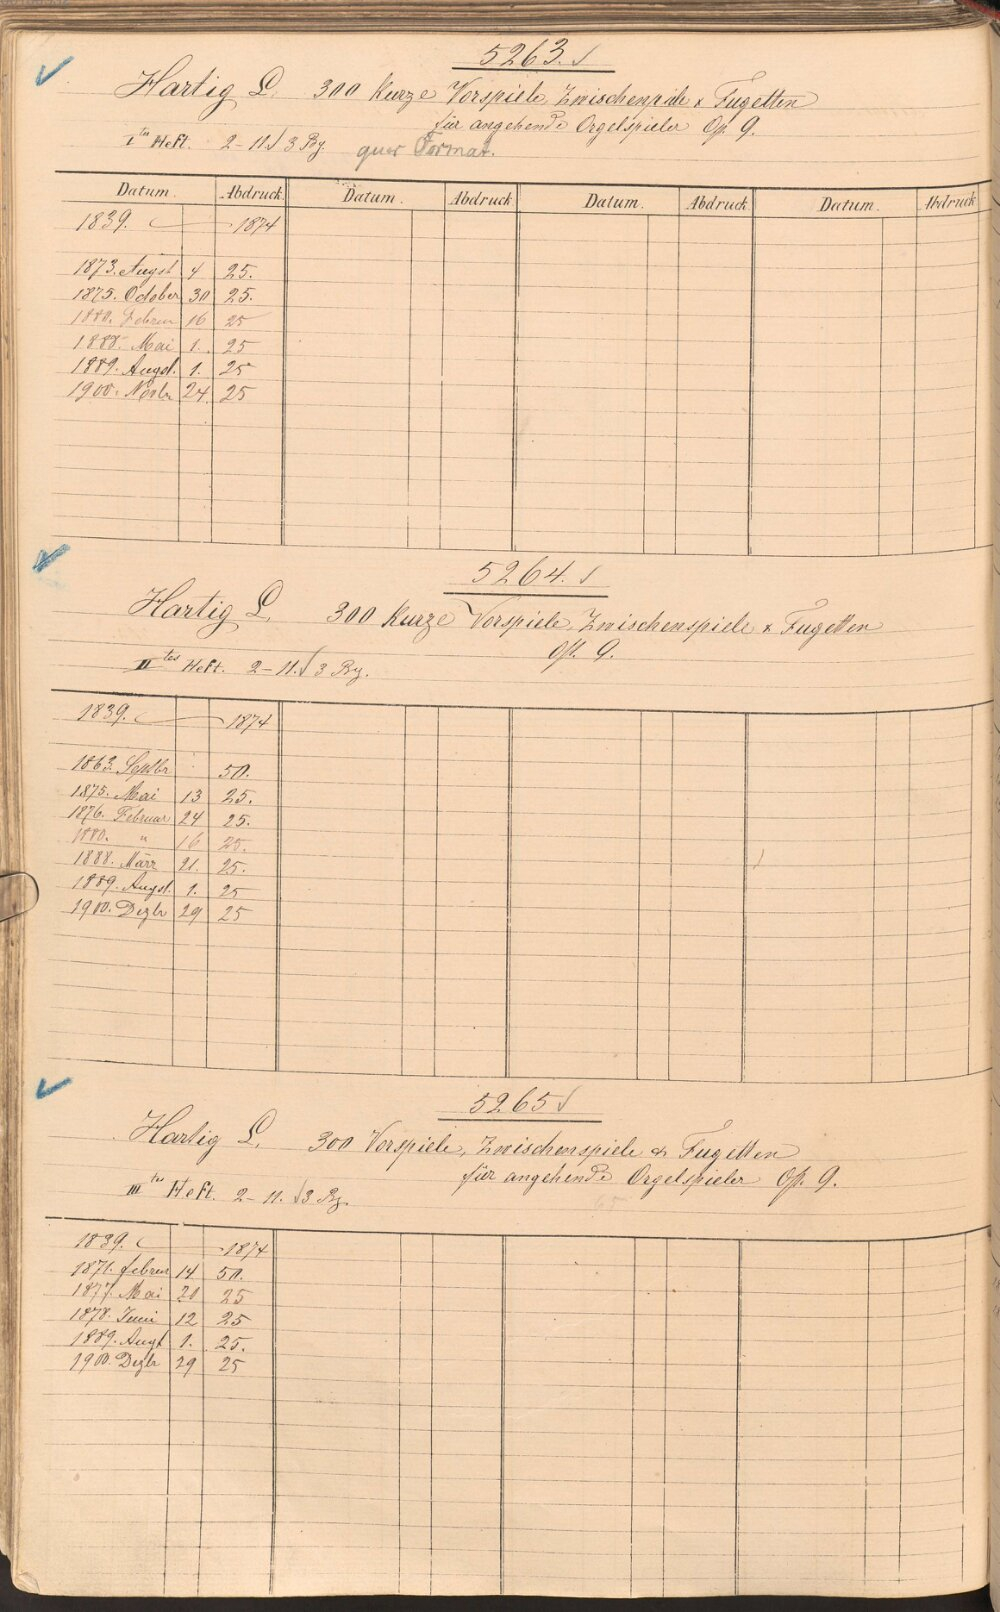 5263.
Hartig L. 300 Kurze Vorspiele, Zwischenspiele & Fugetten
für angehende Orgelspieler Op. 9.
I tes Heft. 2-11. 3 Bg. quer Format.
Datum. Abdruck Datum. Abdruck Datum. Abdruck Datum. Abdruck
1839. 1874
1873. Augst 4 25.
1875. October 30 25.
1880. Februar 16 25
1888. Mai 1. 25
1889. Augst. 1. 25
1900. Novbr 24. 25
5264.
Hartig L. 300 Kurze Vorspiele, Zwischenspiele & Fugetten
Op. 9.
II tes Heft. 2-11. 3 Bg.
1839. 1874
1863. Septbr 50.
1875. Mai 13 25.
1876. Februar 24 25.
1880. " 16 25.
1888. März 21. 25.
1889. Augst. 1. 25
1900. Dezbr 29 25
5265
Hartig L. 300 Vorspiele, Zwischenspiele & Fugetten
für angehende Orgelspieler Op. 9.
III tes Heft. 2-11. 3 Bg.
1839. 1874
1871. Februar 14 50.
1877. Mai 20 25
1878. Juni 12 25
1889. Augst 1. 25.
1900. Dezbr 29 25